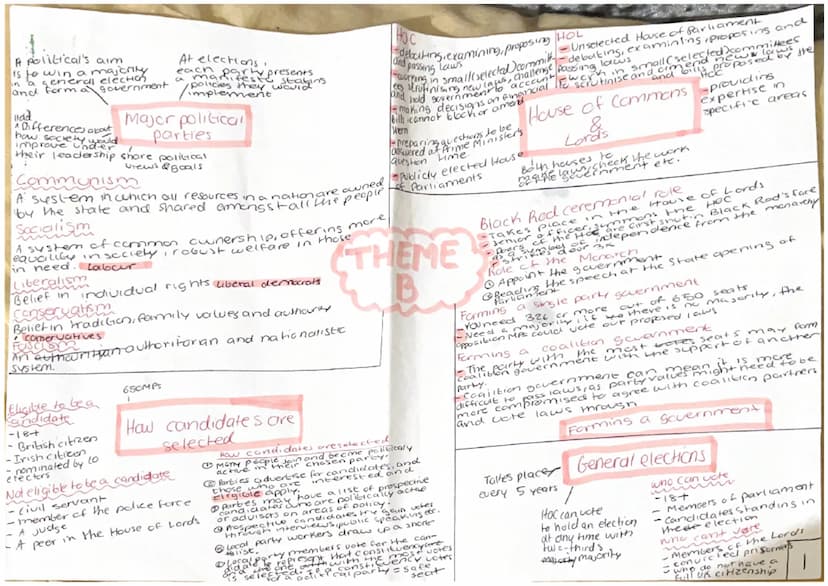 A political's aim
is to win a majority
in a general election
and form a government
At elections,
each party presents
a manifesto stating
policies they would
implement
Major political
parties
Differences about
how society would
improve under
their leadership
share political
views & goals
Communism
A system in which all resources in a nation are owned
by the state and shared amongst all the people
Socialism
A system of common ownership, offering more
equality in society, robust welfare in those
in need. Labour
Liberalism
Belief in individual rights Liberal democrats
Conservatism
Belief in tradition, family values and authority
conservatives
Fascism
An authoritarian and nationalistic
system.
HOC
- debating, examining, proposing
and passing laws
- working in small (selected) committ
ees scrutinising new laws, challenge
and hold government to account
- making decisions on financial
bills cannot block or amend
them
- preparing questions to be
answered at Prime Minister's
question time
- Publicly elected House
of Parliaments
HOL
- Unselected House of Parliament
- debating, examining, proposing and
passing laws
- work in small (selected) committees
to scrutinise and amend new laws
and bills proposed by the
HOC
- providing
expertise in
specific areas
House of Commons
&
Lords
Both houses to
make laws, check the work
of the government etc.
THEME
B
Black Rod ceremonial role
- Takes place in the House of Lords
- senior officer summons the HOC
- doors of the HOC are first shut in Black Rod's face
as a symbol of independence from the monarchy
- strikes door 3x
Role of the Monarch
① Appoint the government
② Reading the speech at the state opening of
Parliament
Forming a single party government
- You need 326 or more out of 650 seats
- Need a majority, if there is no majority, the
opposition MPs could vote our proposed laws
Forming a coalition government
- The party with the most seats may form
coalition government with the support of another
party.
- Coalition government can mean it is more
difficult to pass laws, as party values might need to be
more compromised to agree with coalition partners
and vote laws through
Forming a government
650 MPs
Eligible to be a
candidate
- 18+
- British citizen
- Irish citizen
- nominated by 10
electors
Not eligible to be a candidate
- civil servant
- member of the police force
- A judge
- A peer in the House of Lords
How candidates are
selected
How candidates are selected
① Many people join and become politically
active in their chosen party.
② Parties advertise for candidates, and
those who are interested and
eligible apply.
③ Parties may have a list of prospective
candidates who are politically active
or advisors on areas of policy.
④ Prospective candidates try gain votes
through interviews, public speaking etc.
⑤ Local party workers draw up a short
list.
⑥ Local party members vote for the can-
didate to represent that constituency and
the one with the most votes
is selected
for a political party = safe
seat
General elections
Takes place
every 5 years
HOC can vote
to hold an election
at any time with
two-thirds
majority
who can vote
- 18+
- Members of parliament
- candidates standing in
election
Who can't vote
- Members of the Lords
- convicted prisoners
- who do not have a
full UK citizenship
1